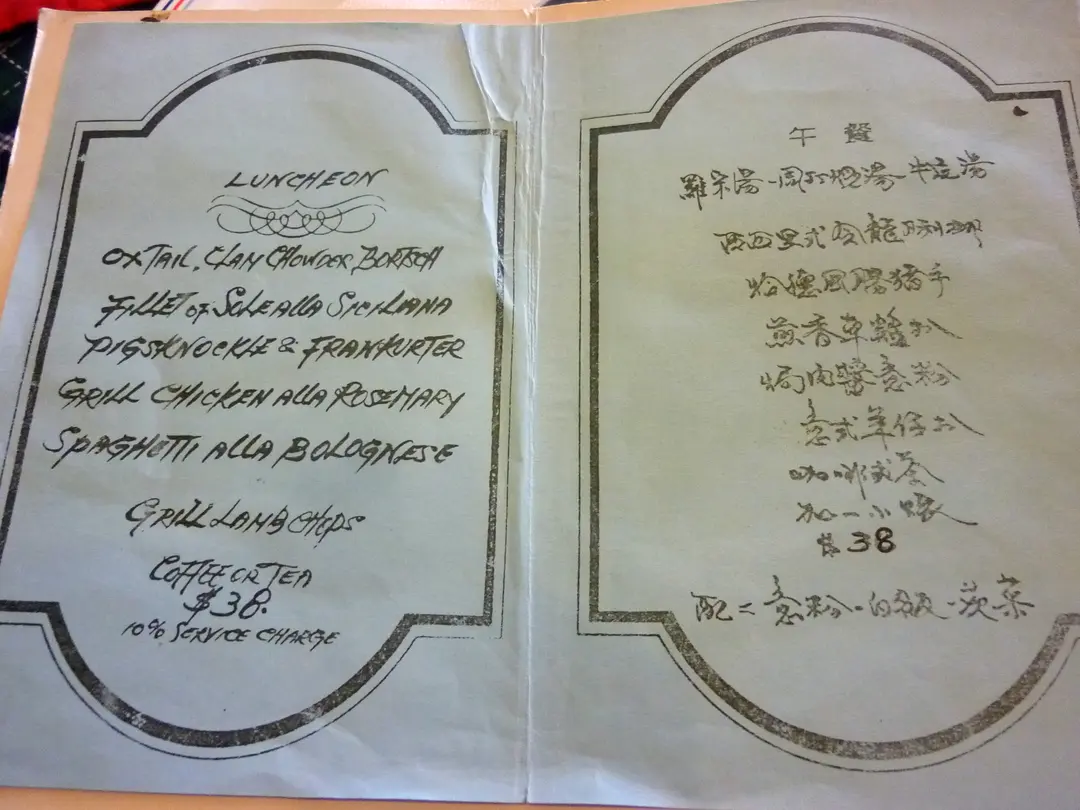 LUNCHEON
OXTAIL, CLAM CHOWDER, BORTSCH
FILLET OF SOLE ALLA SICILIANA
PIGSKNOCKLE & FRANKURTER
GRILL CHICKEN ALLA ROSEMARY
SPAGHETTI ALLA BOLOGNESE
GRILL LAMB CHOPS
COFFEE OR TEA
$38.
10% SERVICE CHARGE
午餐
羅宋湯-周打蜆湯-牛尾湯
西西里式 龍脷柳
腸豬手
煎香草雞扒
焗肉醬意粉
意式羊仔扒
咖啡或茶
加一小賬
$38
配=意粉-白飯-茨菜